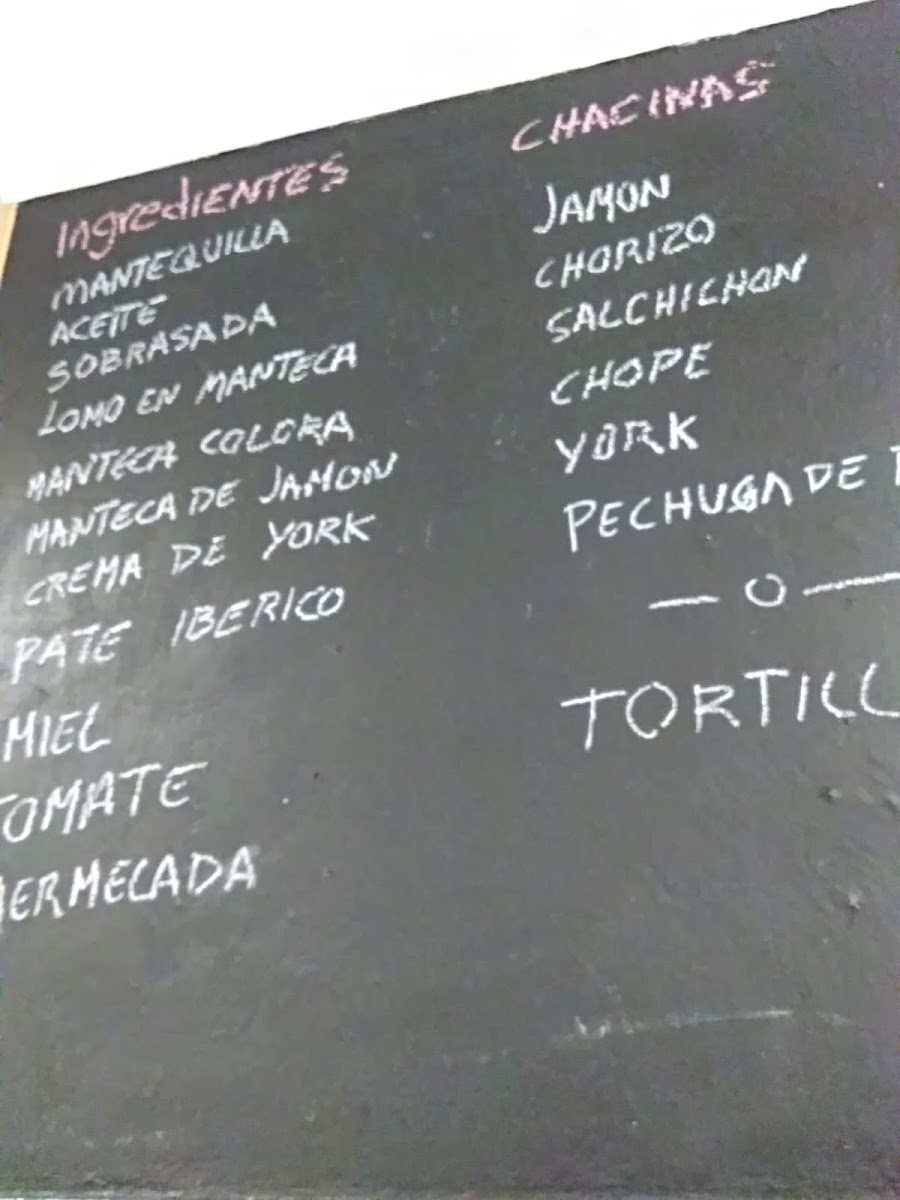 IngredIENTES
MANTEQUILLA
ACEITE
SOBRASADA
LOMO EN MANTECA
MANTECA COLORA
MANTECA DE JAMON
CREMA DE YORK
PATE IBERICO
MIEL
TOMATE
MERMELADA
CHACINAS
JAMON
CHORIZO
SALCHICHON
CHOPE
YORK
PECHUGA DE
— O —
TORTILL